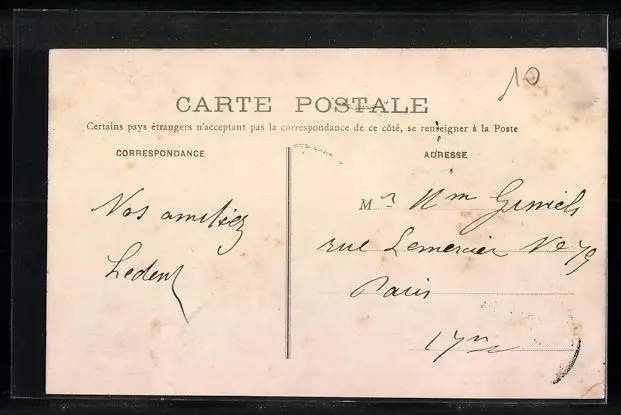 10
CARTE POSTALE
Certains pays étrangers n'acceptant pas la correspondance de ce côté, se renseigner à la Poste
CORRESPONDANCE
ADRESSE
Nos amitiez
Ledent
Mr
rue Lemercier No 79
Paris
17